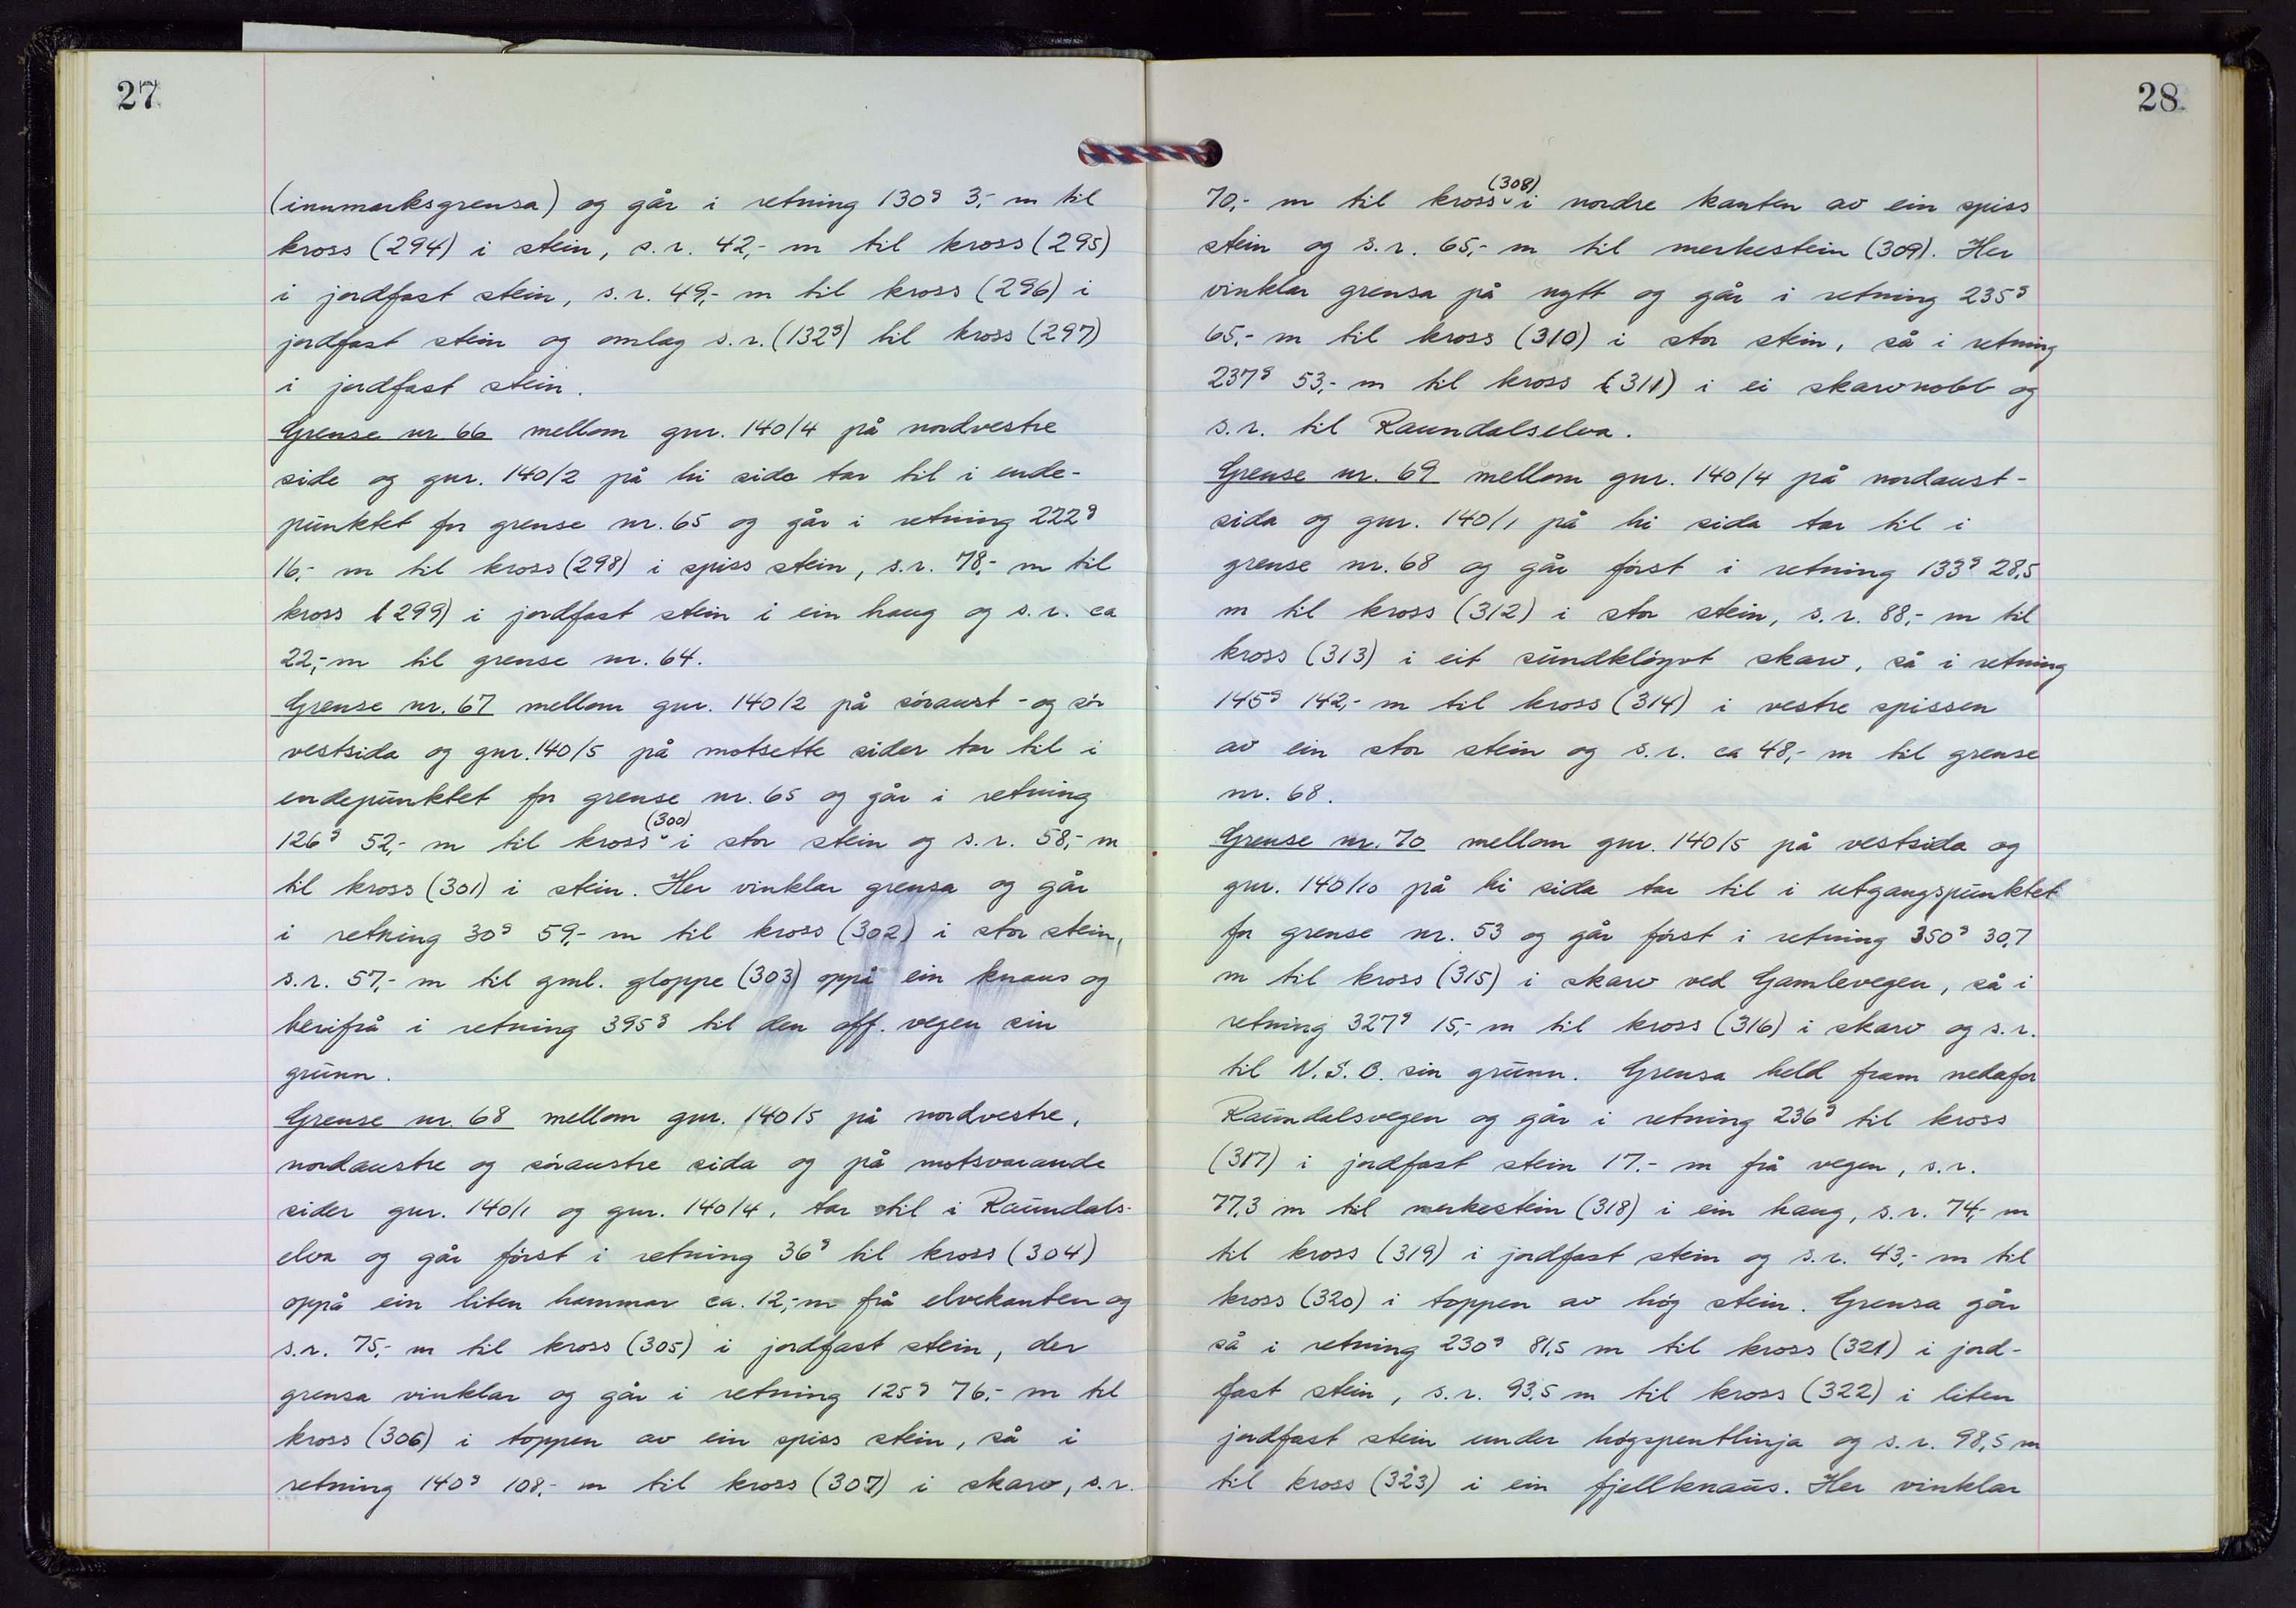 27
(innmarksgrensa) og går i retning 130ᵍ 3,- m til
kross (294) i stein, s.r. 42,- m til kross (295)
i jordfast stein, s.r. 49,- m til kross (296) i
jordfast stein og omlag s.r. (132ᵍ) til kross (297)
i jordfast stein.
Grense nr 66 mellom gnr. 140/4 på nordvestre
side og gnr. 140/2 på hi side tar til i ende-
punktet for grense nr. 65 og går i retning 222ᵍ
16,- m til kross (298) i spiss stein, s.r. 78,- m til
kross (299) i jordfast stein i ein haug og s.r. ca
22,- m til grense nr. 64.
Grense nr. 67 mellom gnr. 140/2 på søraust- og sør
vestsida og gnr. 140/5 på motsette sider tar til i
endepunktet for grense nr. 65 og går i retning
126ᵍ 52,- m til kross (300) i stor stein og s.r. 58,- m
til kross (301) i stein. Her vinklar grensa og går
i retning 30ᵍ 59,- m til kross (302) i stor stein,
s.r. 57,- m til gml. gloppe (303) oppå ein knaus og
herifrå i retning 395ᵍ til den off. vegen sin
grunn.
Grense nr. 68 mellom gnr. 140/5 på nordvestre,
nordaustre og søraustre sida og på motsvarande
sider gnr. 140/1 og gnr. 140/4, tar til i Raundals-
elva og går først i retning 36ᵍ til kross (304)
oppå ein liten hammar ca. 12,- m frå elvekanten og
s.r. 75,- m til kross (305) i jordfast stein, der
grensa vinklar og går i retning 125ᵍ 76,- m til
kross (306) i toppen av ein spiss stein, så i
retning 140ᵍ 108,- m til kross (307) i skarv, s.r.
28
70,- m til kross (308) i nordre kanten av ein spiss
stein og s.r. 65,- m til merkestein (309). Her
vinklar grensa på nytt og går i retning 235ᵍ
65,- m til kross (310) i stor stein, så i retning
237ᵍ 53,- m til kross (311) i ei skarvnobb og
s.r. til Raundalselva.
Grense nr. 69 mellom gnr. 140/4 på nordaust-
sida og gnr. 140/1 på hi sida tar til i
grense nr. 68 og går først i retning 133ᵍ 28,5
m til kross (312) i stor stein, s.r. 88,- m til
kross (313) i eit sundkløyvt skarv, så i retning
145ᵍ 142,- m til kross (314) i vestre spissen
av ein stor stein og s.r. ca 48,- m til grense
nr. 68.
Grense nr. 70 mellom gnr. 140/5 på vestsida og
gnr. 140/10 på hi sida tar til i utgangspunktet
for grense nr. 53 og går først i retning 350ᵍ 30,7
m til kross (315) i skarv ved Gamlevegen, så i
retning 327ᵍ 15,- m til kross (316) i skarv og s.r.
til N.S.B. sin grunn. Grensa held fram nedafor
Raundalsvegen og går i retning 236ᵍ til kross
(317) i jordfast stein 17,- m frå vegen, s.r.
77,3 m til merkestein (318) i ein haug, s.r. 74,- m
til kross (319) i jordfast stein og s.r. 43,- m til
kross (320) i toppen av høg stein. Grensa går
så i retning 230ᵍ 81,5 m til kross (321) i jord-
fast stein, s.r. 93,5 m til kross (322) i liten
jordfast stein under høgspentlinja og s.r. 98,5 m
til kross (323) i ein fjellknaus. Her vinklar